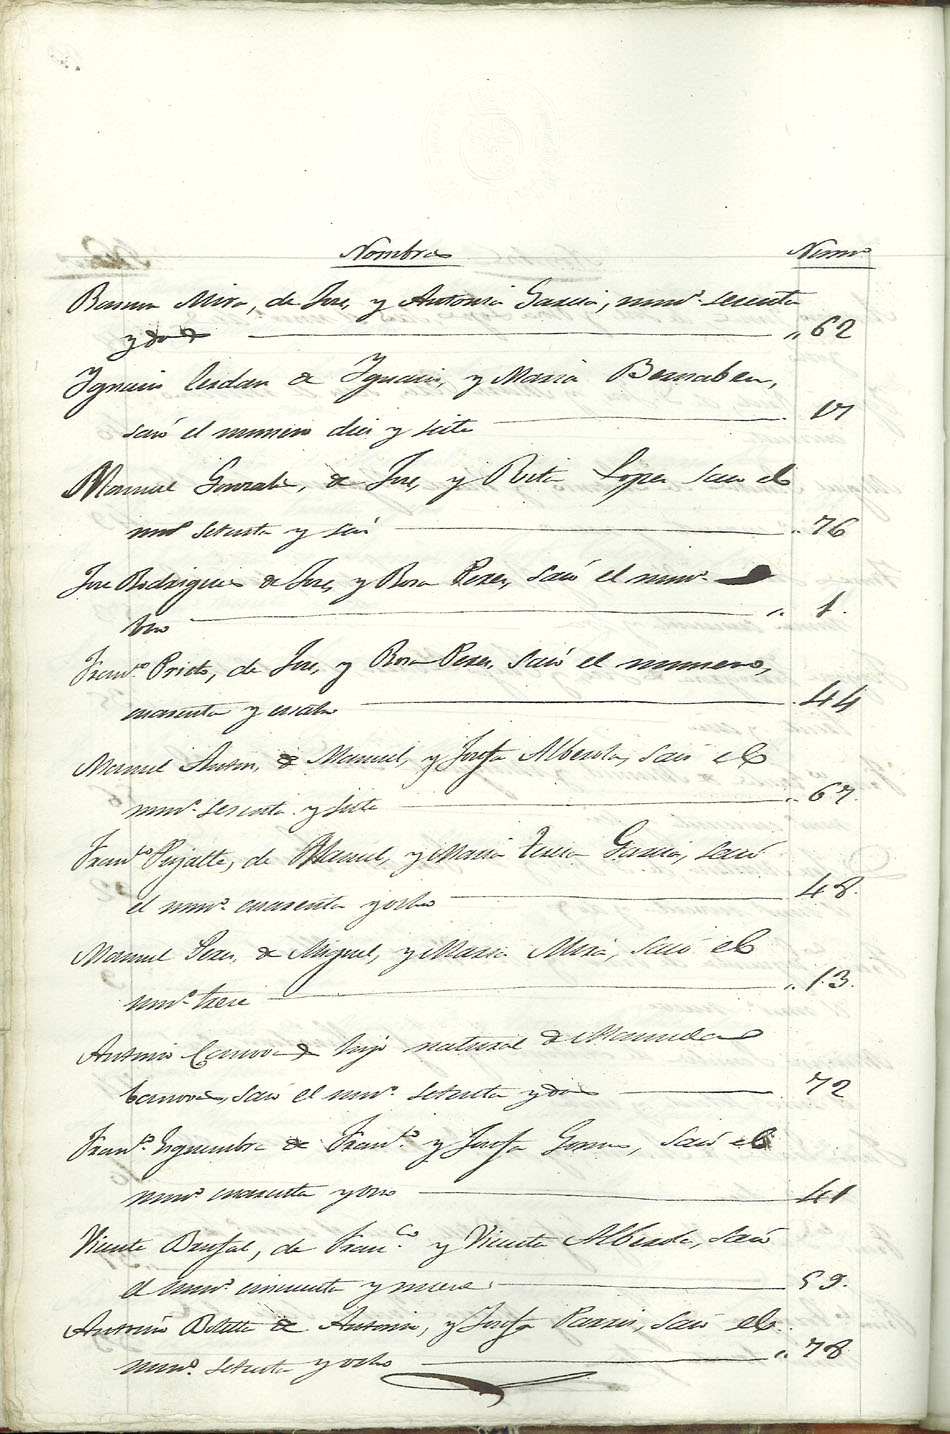 Nombres Numº
Ramon Mira, de Jose, y Antonia Garcia, numº sesenta
y dos „ 62
Ygnacio Cerdan de Ygnacio, y Maria Bernabeu,
sacó el numero dies y siete 17
Manuel Gonzalez, de Jose, y Rita Lopez saco el
numº setenta y seis „ 76
Jose Rodriguez de Jose, y Rosa Perez, sacó el numº
uno „ 1.
Franº Prieto, de Jose, y Rosa Perez, sacó el numero,
cuarenta y cuatro 44
Manuel Anton, de Manuel, y Josefa Alberola, sacó el
numº sesenta y siete „ 67.
Franco Pujalte, de Manuel, y Maria Teresa Garcia, sacó
el numº cuarenta y ocho 48.
Manuel Perez, de Miguel, y Maria Mira, sacó el
numº trece „ 13.
Antonio Canovas hijo natural de Manuela
Canovas, sacó el numº setenta y dos 72
Franco de Franco y Josefa Gomes, sacó el
numº cuarenta y uno 41
Vicente Brufal, de Franco y Vicenta Alberola, sacó
el numº cincuenta y nueve 59.
Antonio Botella de Antonio, y Josefa sacó el
numº setenta y ocho „ 78